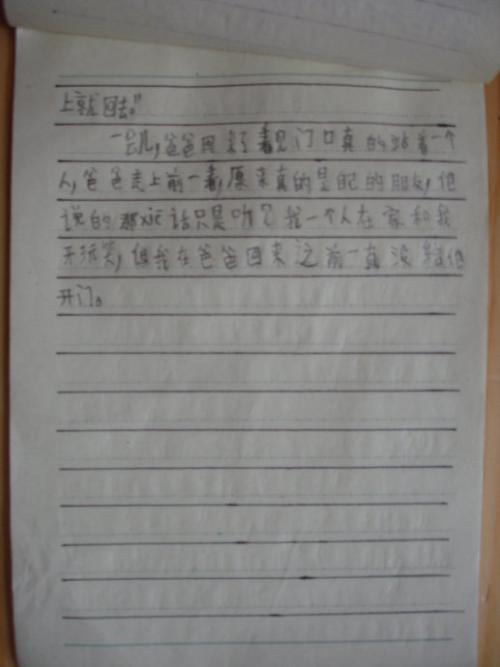 上就回去。"
一会儿,爸爸回来了看见门口真的站着一个
人,爸爸走上前一看,原来真的是爸的朋友,他
说的那xie话只是听见我一个人在家和我
开玩笑,但我在爸爸回来之前一直没给他
开门。